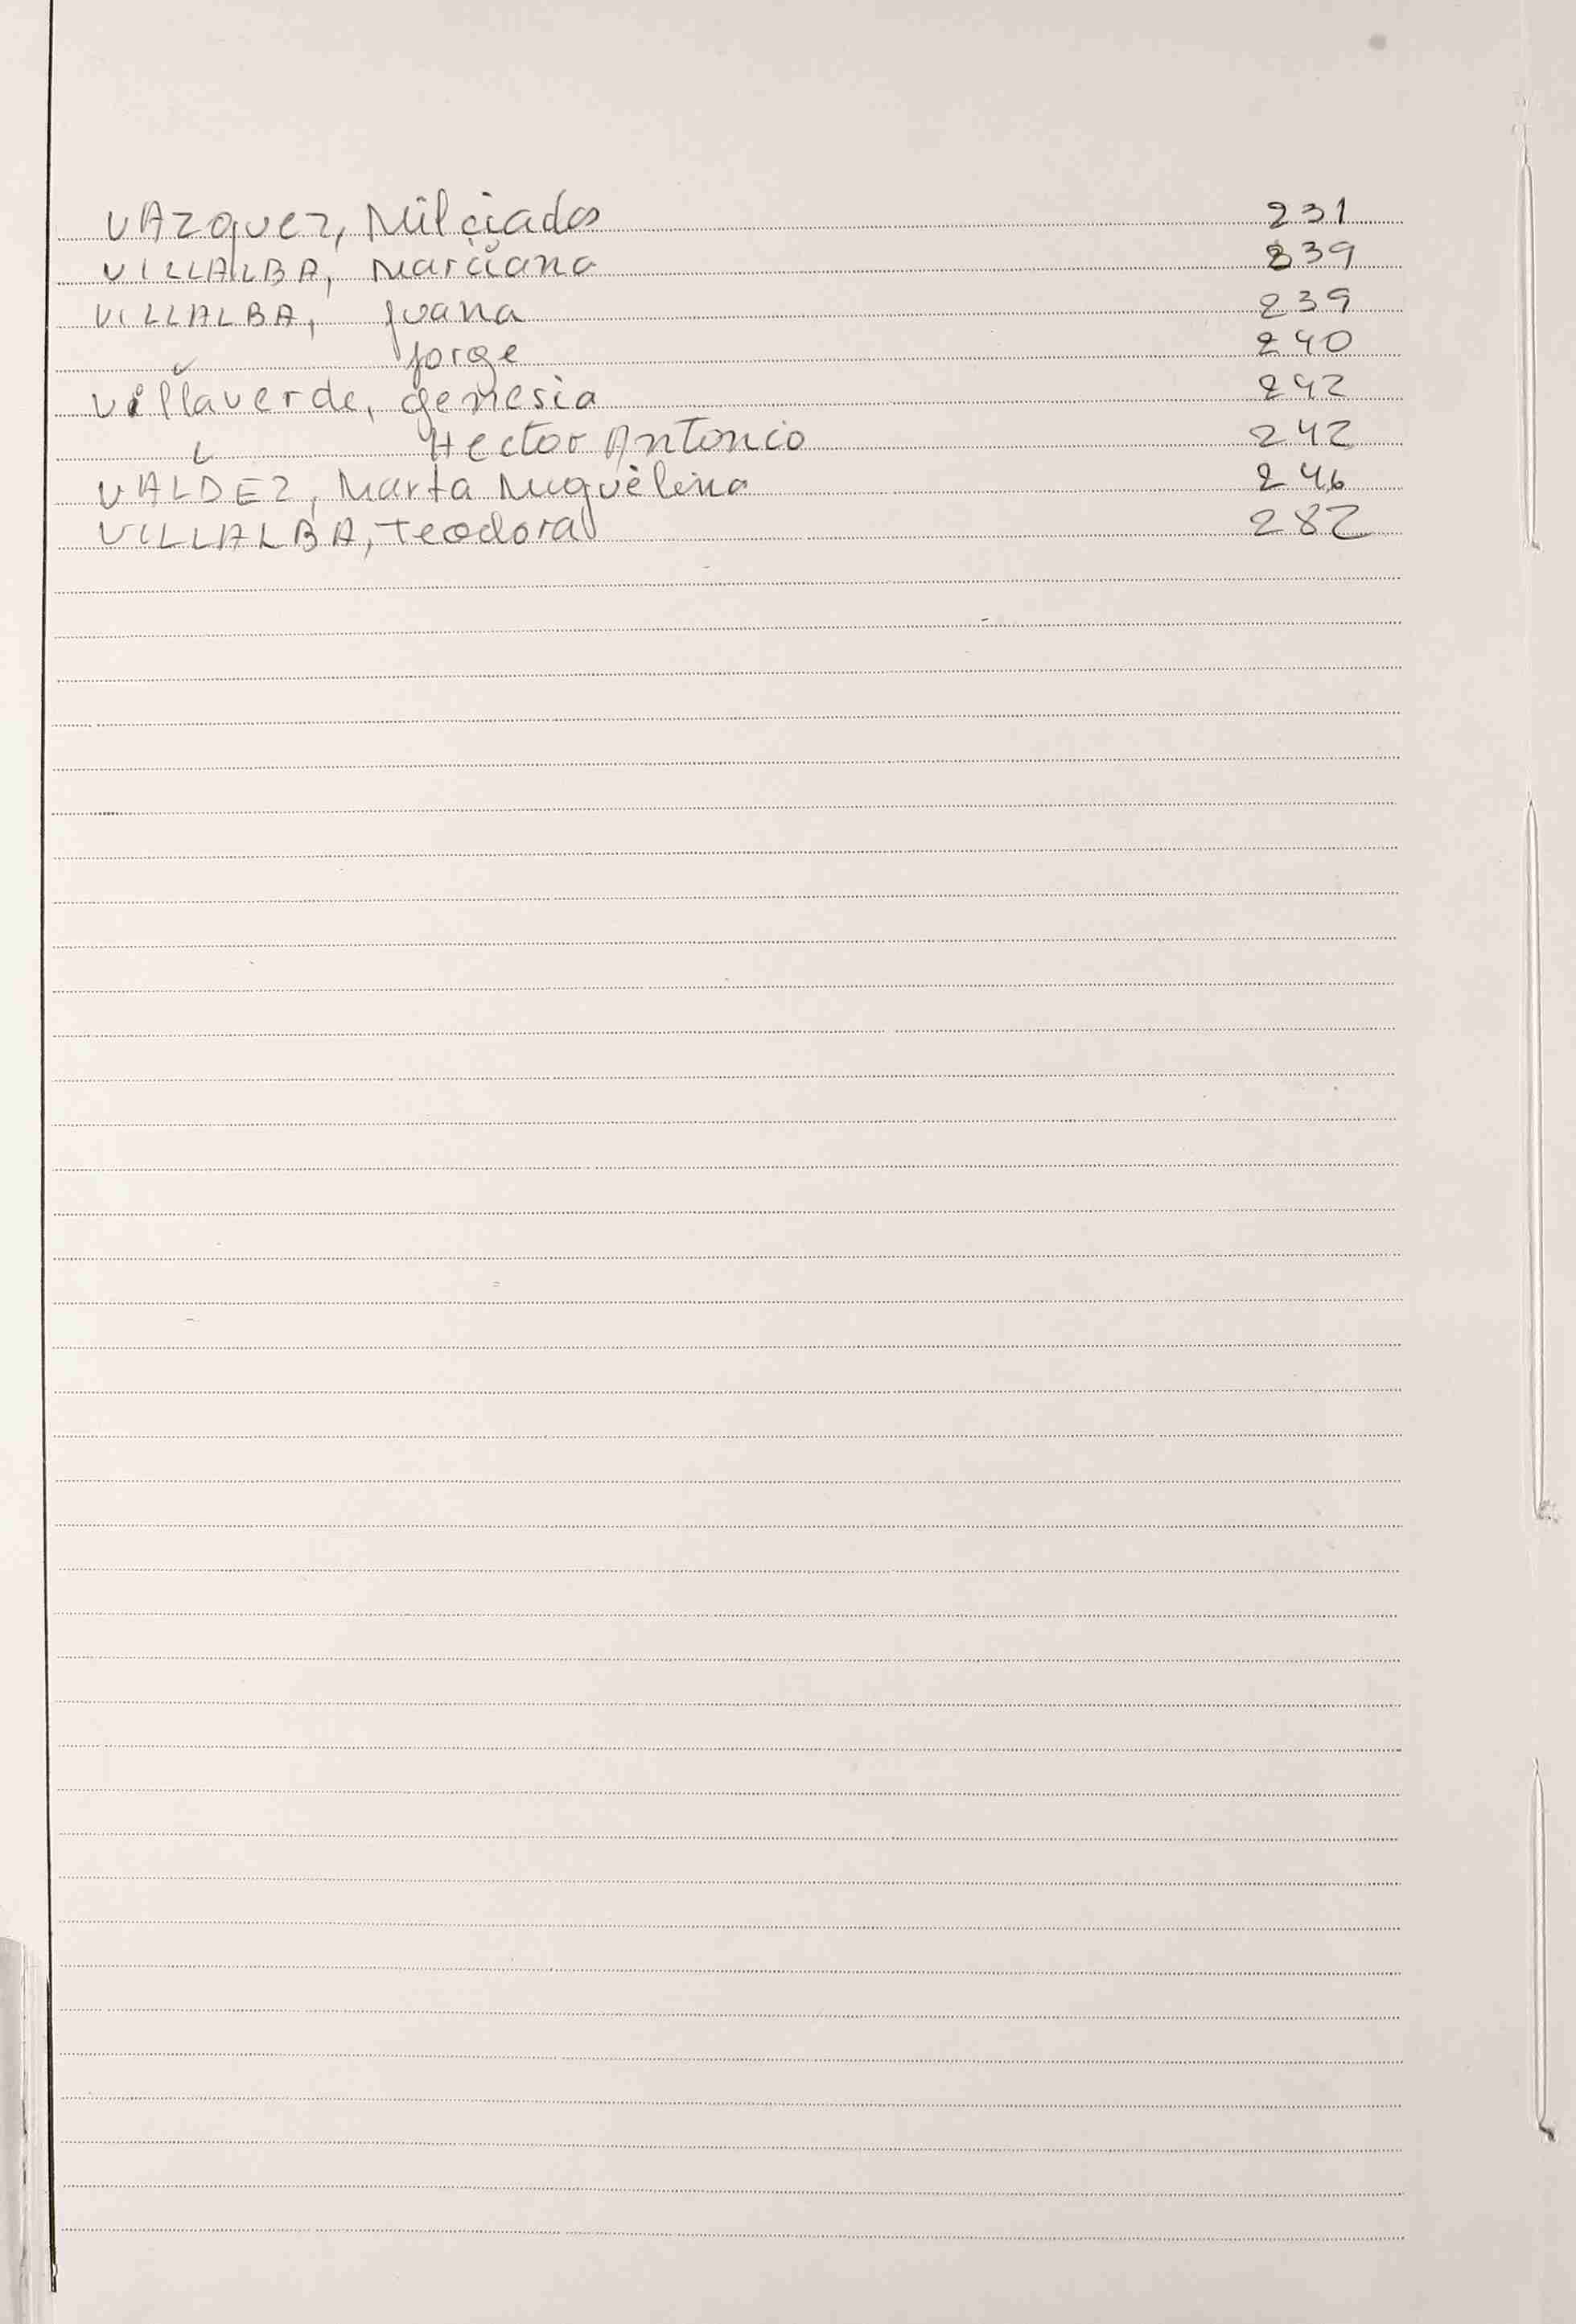 VAZquez, Milciades 231
VILLALBA, Marciana 239
VILLALBA, Juana 239
" Jorge 240
Villaverde, genesia 242
" Hector Antonio 242
VALDEZ, Marta Miguelina 246
VILLALBA, Teodora 282